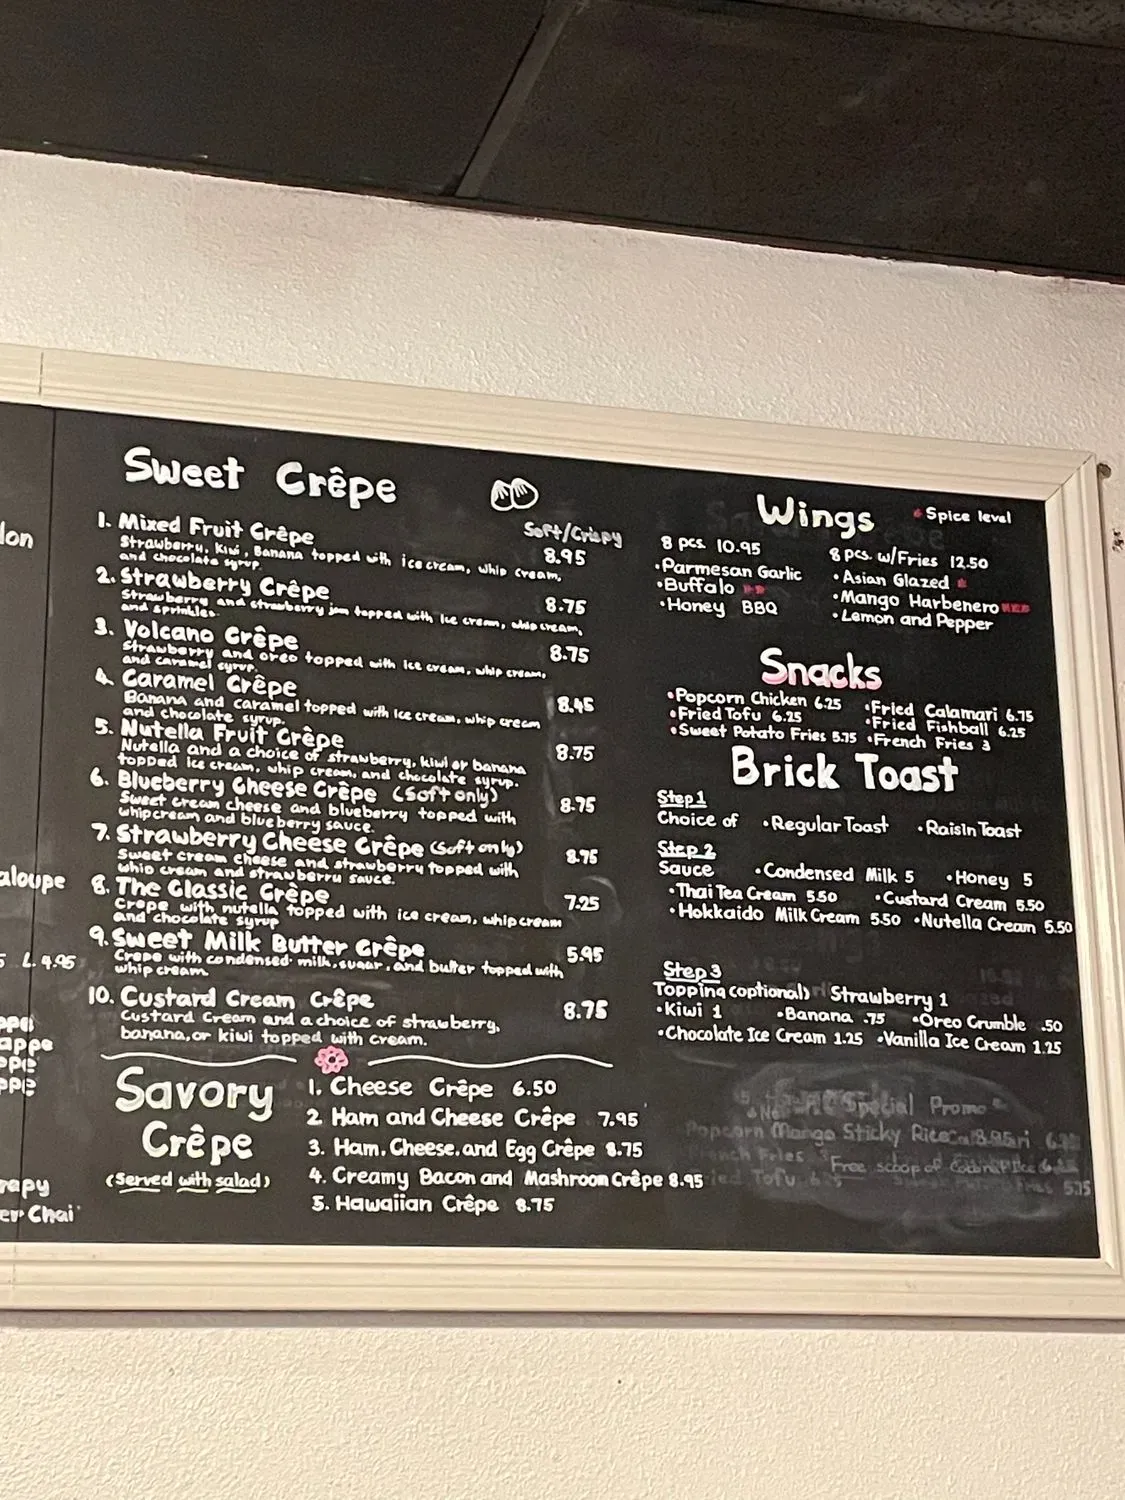 lon
aloupe
L. 4.95
appe
er Chai
Sweet Crêpe
Soft/Crispy
1. Mixed Fruit Crêpe 8.95
Strawberry, Kiwi, Banana topped with ice cream, whip cream,
and chocolate syrup.
2. Strawberry Crêpe 8.75
Strawberry and strawberry jam topped with Ice cream, whip cream,
and sprinkles.
3. Volcano Crêpe 8.75
Strawberry and oreo topped with Ice cream, whip cream,
and caramel syrup.
4. Caramel Crêpe 8.45
Banana and caramel topped with Ice cream, whip cream
and chocolate syrup.
5. Nutella Fruit Crêpe 8.75
Nutella and a choice of strawberry, kiwi or banana
topped Ice cream, whip cream, and chocolate syrup.
6. Blueberry Cheese Crêpe (Soft only) 8.75
Sweet cream cheese and blueberry topped with
whipcream and blueberry sauce.
7. Strawberry Cheese Crêpe (Soft only) 8.75
Sweet cream cheese and strawberry topped with
whip cream and strawberry sauce.
8. The Classic Crêpe 7.25
Crepe with nutella topped with ice cream, whip cream
and chocolate syrup
9. Sweet Milk Butter Crêpe 5.95
Crepe with condensed milk, sugar, and butter topped with
whip cream.
10. Custard Cream Crêpe 8.75
Custard Cream and a choice of strawberry,
banana, or kiwi topped with cream.
Savory
Crêpe
(Served with salad)
1. Cheese Crêpe 6.50
2. Ham and Cheese Crêpe 7.95
3. Ham, Cheese, and Egg Crêpe 8.75
4. Creamy Bacon and Mashroom Crêpe 8.95
5. Hawaiian Crêpe 8.75
Wings
Spice level
8 pcs. 10.95 8 pcs. w/Fries 12.50
•Parmesan Garlic •Asian Glazed
•Buffalo •Mango Harbenero
•Honey BBQ •Lemon and Pepper
Snacks
•Popcorn Chicken 6.25 •Fried Calamari 6.75
•Fried Tofu 6.25 •Fried Fishball 6.25
•Sweet Potato Fries 5.75 •French Fries 3
Brick Toast
Step 1
Choice of •Regular Toast •Raisin Toast
Step 2
Sauce •Condensed Milk 5 •Honey 5
•Thai Tea Cream 5.50 •Custard Cream 5.50
•Hokkaido Milk Cream 5.50 •Nutella Cream 5.50
Step 3
Topping (optional) Strawberry 1
•Kiwi 1 •Banana .75 •Oreo Crumble .50
•Chocolate Ice Cream 1.25 •Vanilla Ice Cream 1.25
Special Promo
Popcorn Mango Sticky Rice 8.95
French Fries Free scoop of
Tofu 5.75